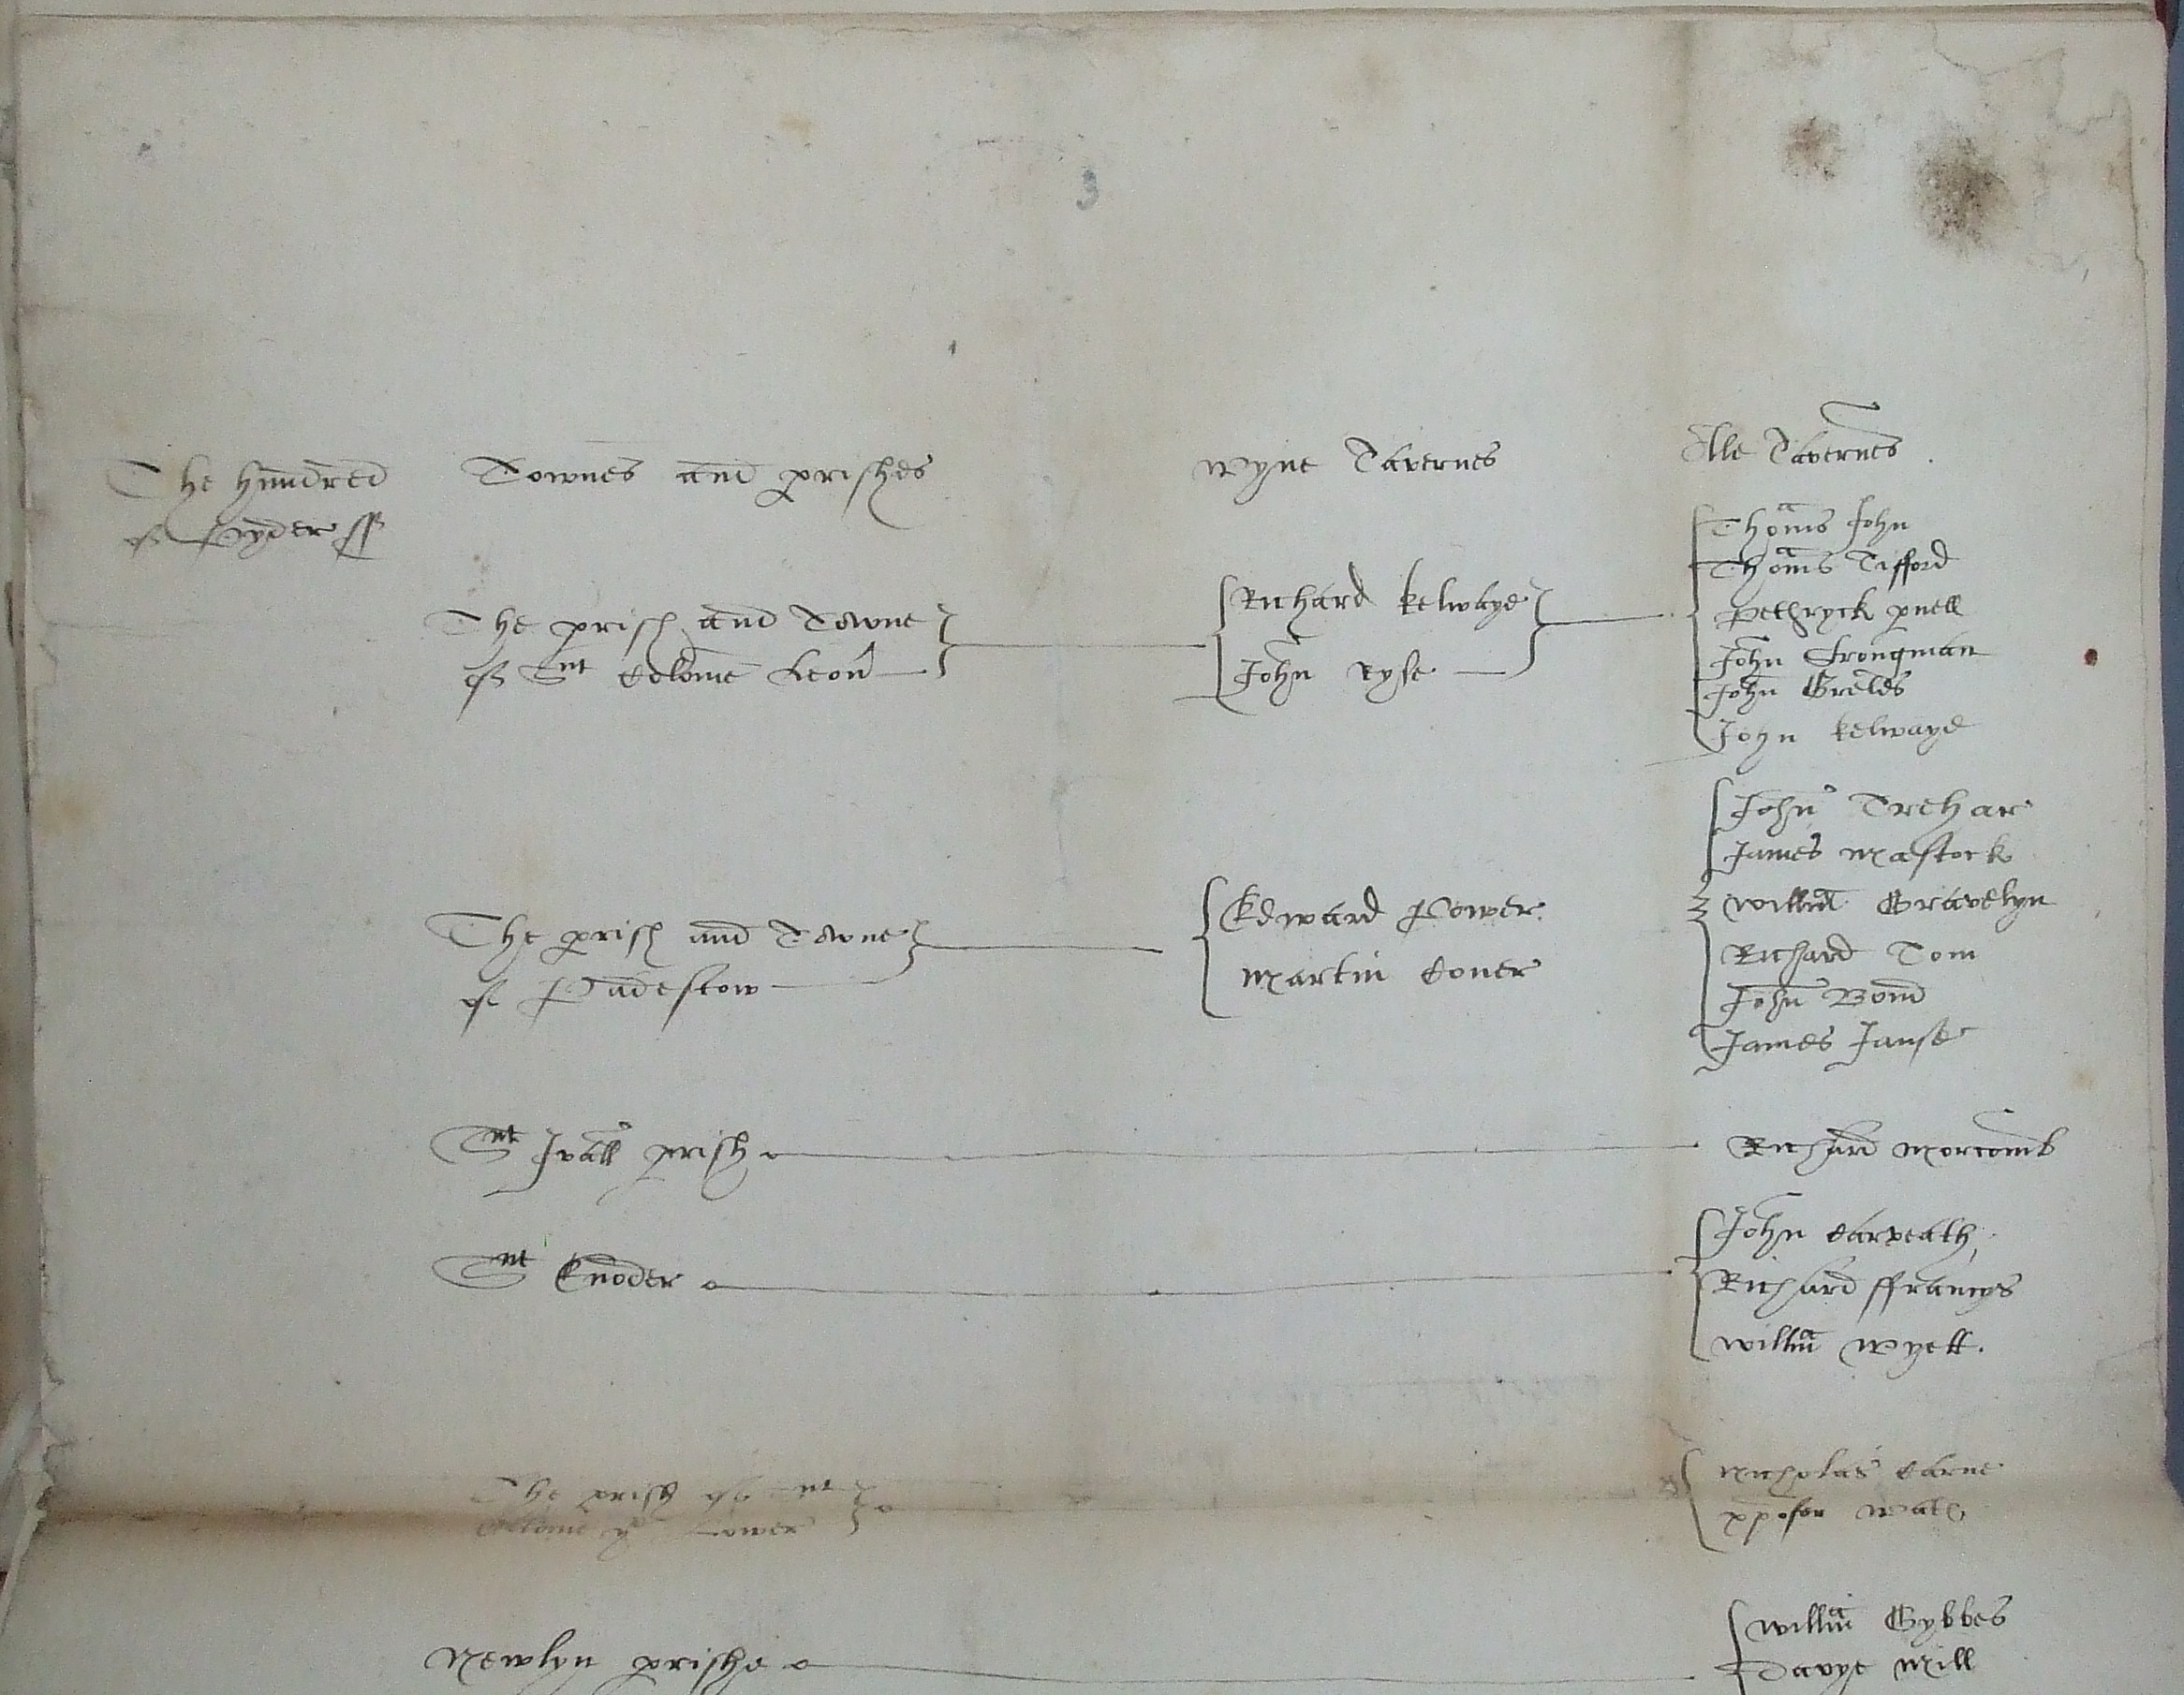 3
The hundred
of Pyder ss
Townes and prishes
Wyne Tavernes
Alle Tavernes
The prish and Towne
of Snt Colome Leon
Richard Kelwaye
John Ryse
Thomas John
Thomas Tifford
Pethryck pnell
John Strongman
John Grelds
John Kelwaye
The prish and Towne
of Padestow
Edward Power
Martin Coner
John Trehar
James Mastock
Willim Gravelyn
Richard Tom
John Bond
James Janse
Snt Jvall prish
Richard Morcomb
Snt Enoder
John Carveath
Richard ffrancys
Willim Wyett
The prish of Snt
Colome ye Lower
Nicholas Carne
xpofer Wall
Newlyn prishe
Willim Gybbes
Davye Mill